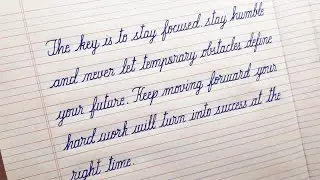 The key is to stay focused, stay humble
and never let temporary obstacles define
your future. Keep moving forward your
hard work will turn into success at the
right time.